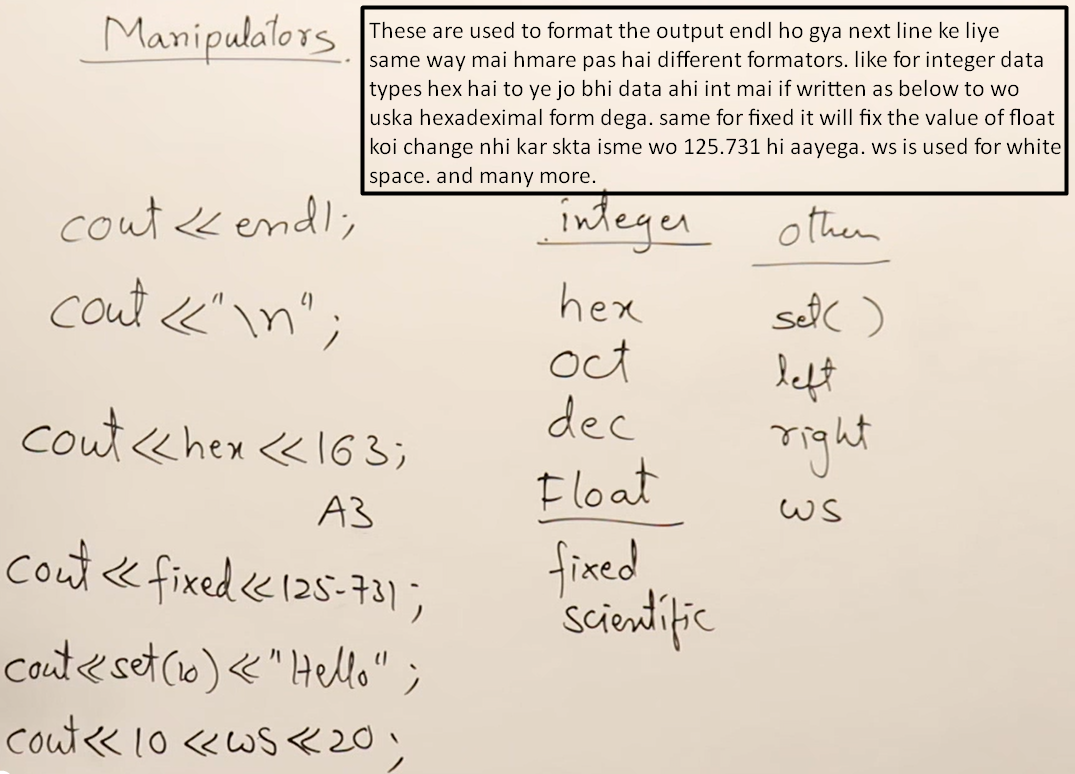 Manipulators.
These are used to format the output endl ho gya next line ke liye
same way mai hmare pas hai different formators. like for integer data
types hex hai to ye jo bhi data ahi int mai if written as below to wo
uska hexadeximal form dega. same for fixed it will fix the value of float
koi change nhi kar skta isme wo 125.731 hi aayega. ws is used for white
space. and many more.
cout << endl;
cout << "\n";
cout << hex << 163;
A3
cout << fixed << 125.731;
cout << set(10) << "Hello";
cout << 10 << ws << 20;
integer
hex
oct
dec
Float
fixed
scientific
other
set( )
left
right
ws